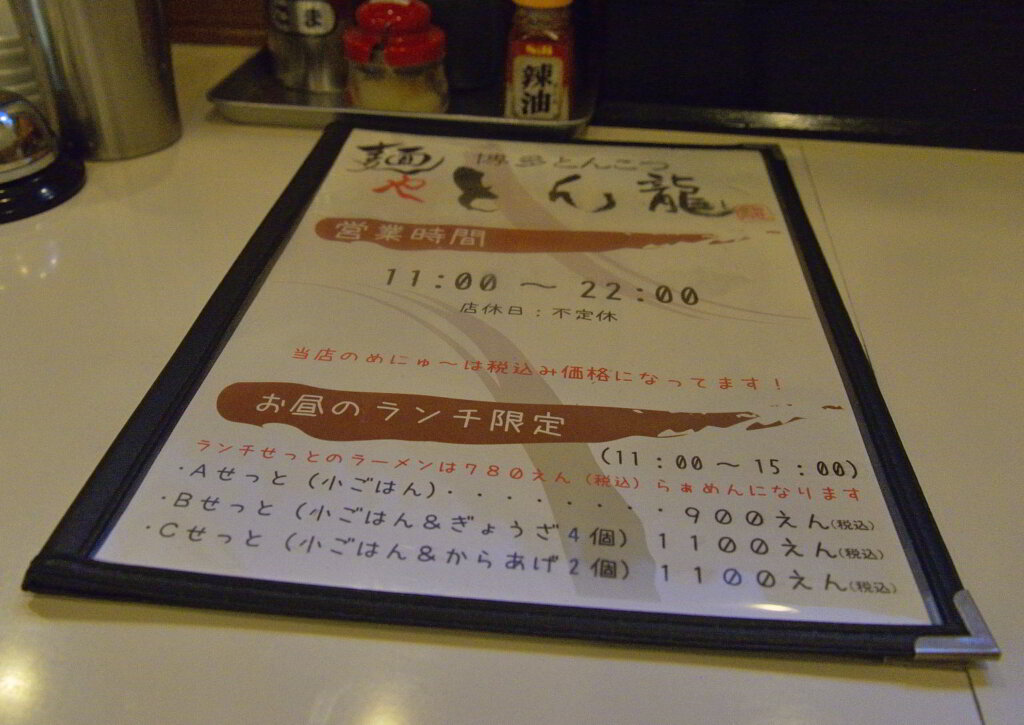 ごま
S&B
辣油
麺や 博多とんこつ
とん龍
営業時間
11:00 ～ 22:00
店休日：不定休
当店のめにゅ～は税込み価格になってます！
お昼のランチ限定
(11：00～15：00)
ランチせっとのラーメンは７８０えん（税込）らぁめんになります
・Aせっと（小ごはん）・・・・・・・・９００えん(税込)
・Bせっと（小ごはん＆ぎょうざ４個）１１００えん(税込)
・Cせっと（小ごはん＆からあげ２個）１１００えん(税込)